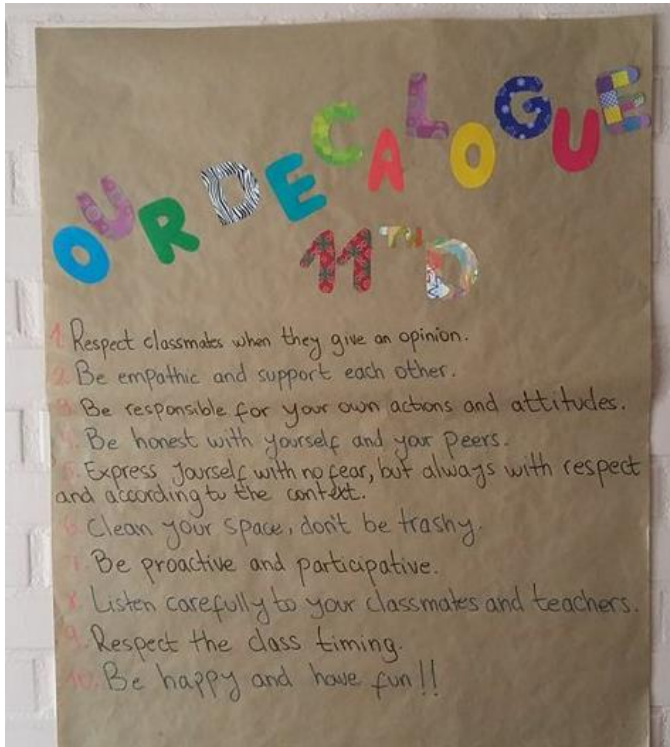 OUR DECALOGUE
11TH D
1. Respect classmates when they give an opinion.
2. Be empathic and support each other.
3. Be responsible for your own actions and attitudes.
4. Be honest with yourself and your peers.
5. Express yourself with no fear, but always with respect
and according to the context.
6. Clean your space, don't be trashy.
7. Be proactive and participative.
8. Listen carefully to your classmates and teachers.
9. Respect the class timing.
10. Be happy and have fun!!